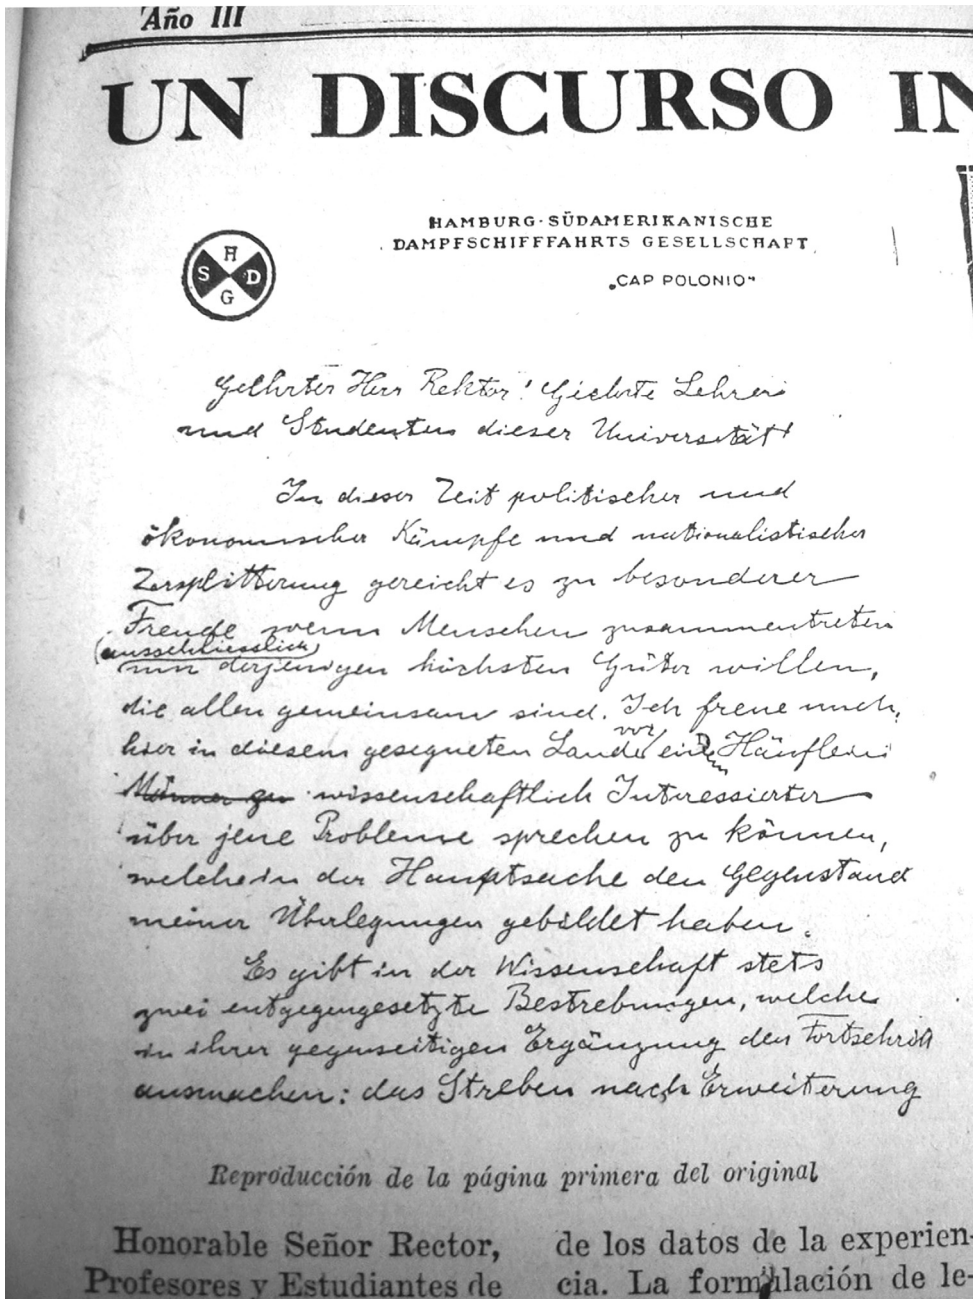 Año III
UN DISCURSO IN
HAMBURG-SÜDAMERIKANISCHE
DAMPFSCHIFFFAHRTS GESELLSCHAFT
„CAP POLONIO“
H
S D
G
Geehrter Herr Rektor! Geehrte Lehrer
und Studenten dieser Universität!
In dieser Zeit politischer und
ökonomischer Kämpfe und nationalistischer
Zersplitterung gereicht es zu besonderer
Freude wenn Menschen zusammentreten
(ausschliesslich)
um derjenigen höchsten Güter willen,
die allen gemeinsam sind. Ich freue mich,
hier in diesem gesegneten Lande vor einem Häuflein
Männer zu wissenschaftlich Interessierter
über jene Probleme sprechen zu können,
welche in der Hauptsache den Gegenstand
meiner Überlegungen gebildet haben.
Es gibt in der Wissenschaft stets
zwei entgegengesetzte Bestrebungen, welche
in ihrer gegenseitigen Ergänzung den Fortschritt
ausmachen: das Streben nach Erweiterung
Reproducción de la página primera del original
Honorable Señor Rector,
Profesores y Estudiantes de
de los datos de la experien-
cia. La formulación de le-